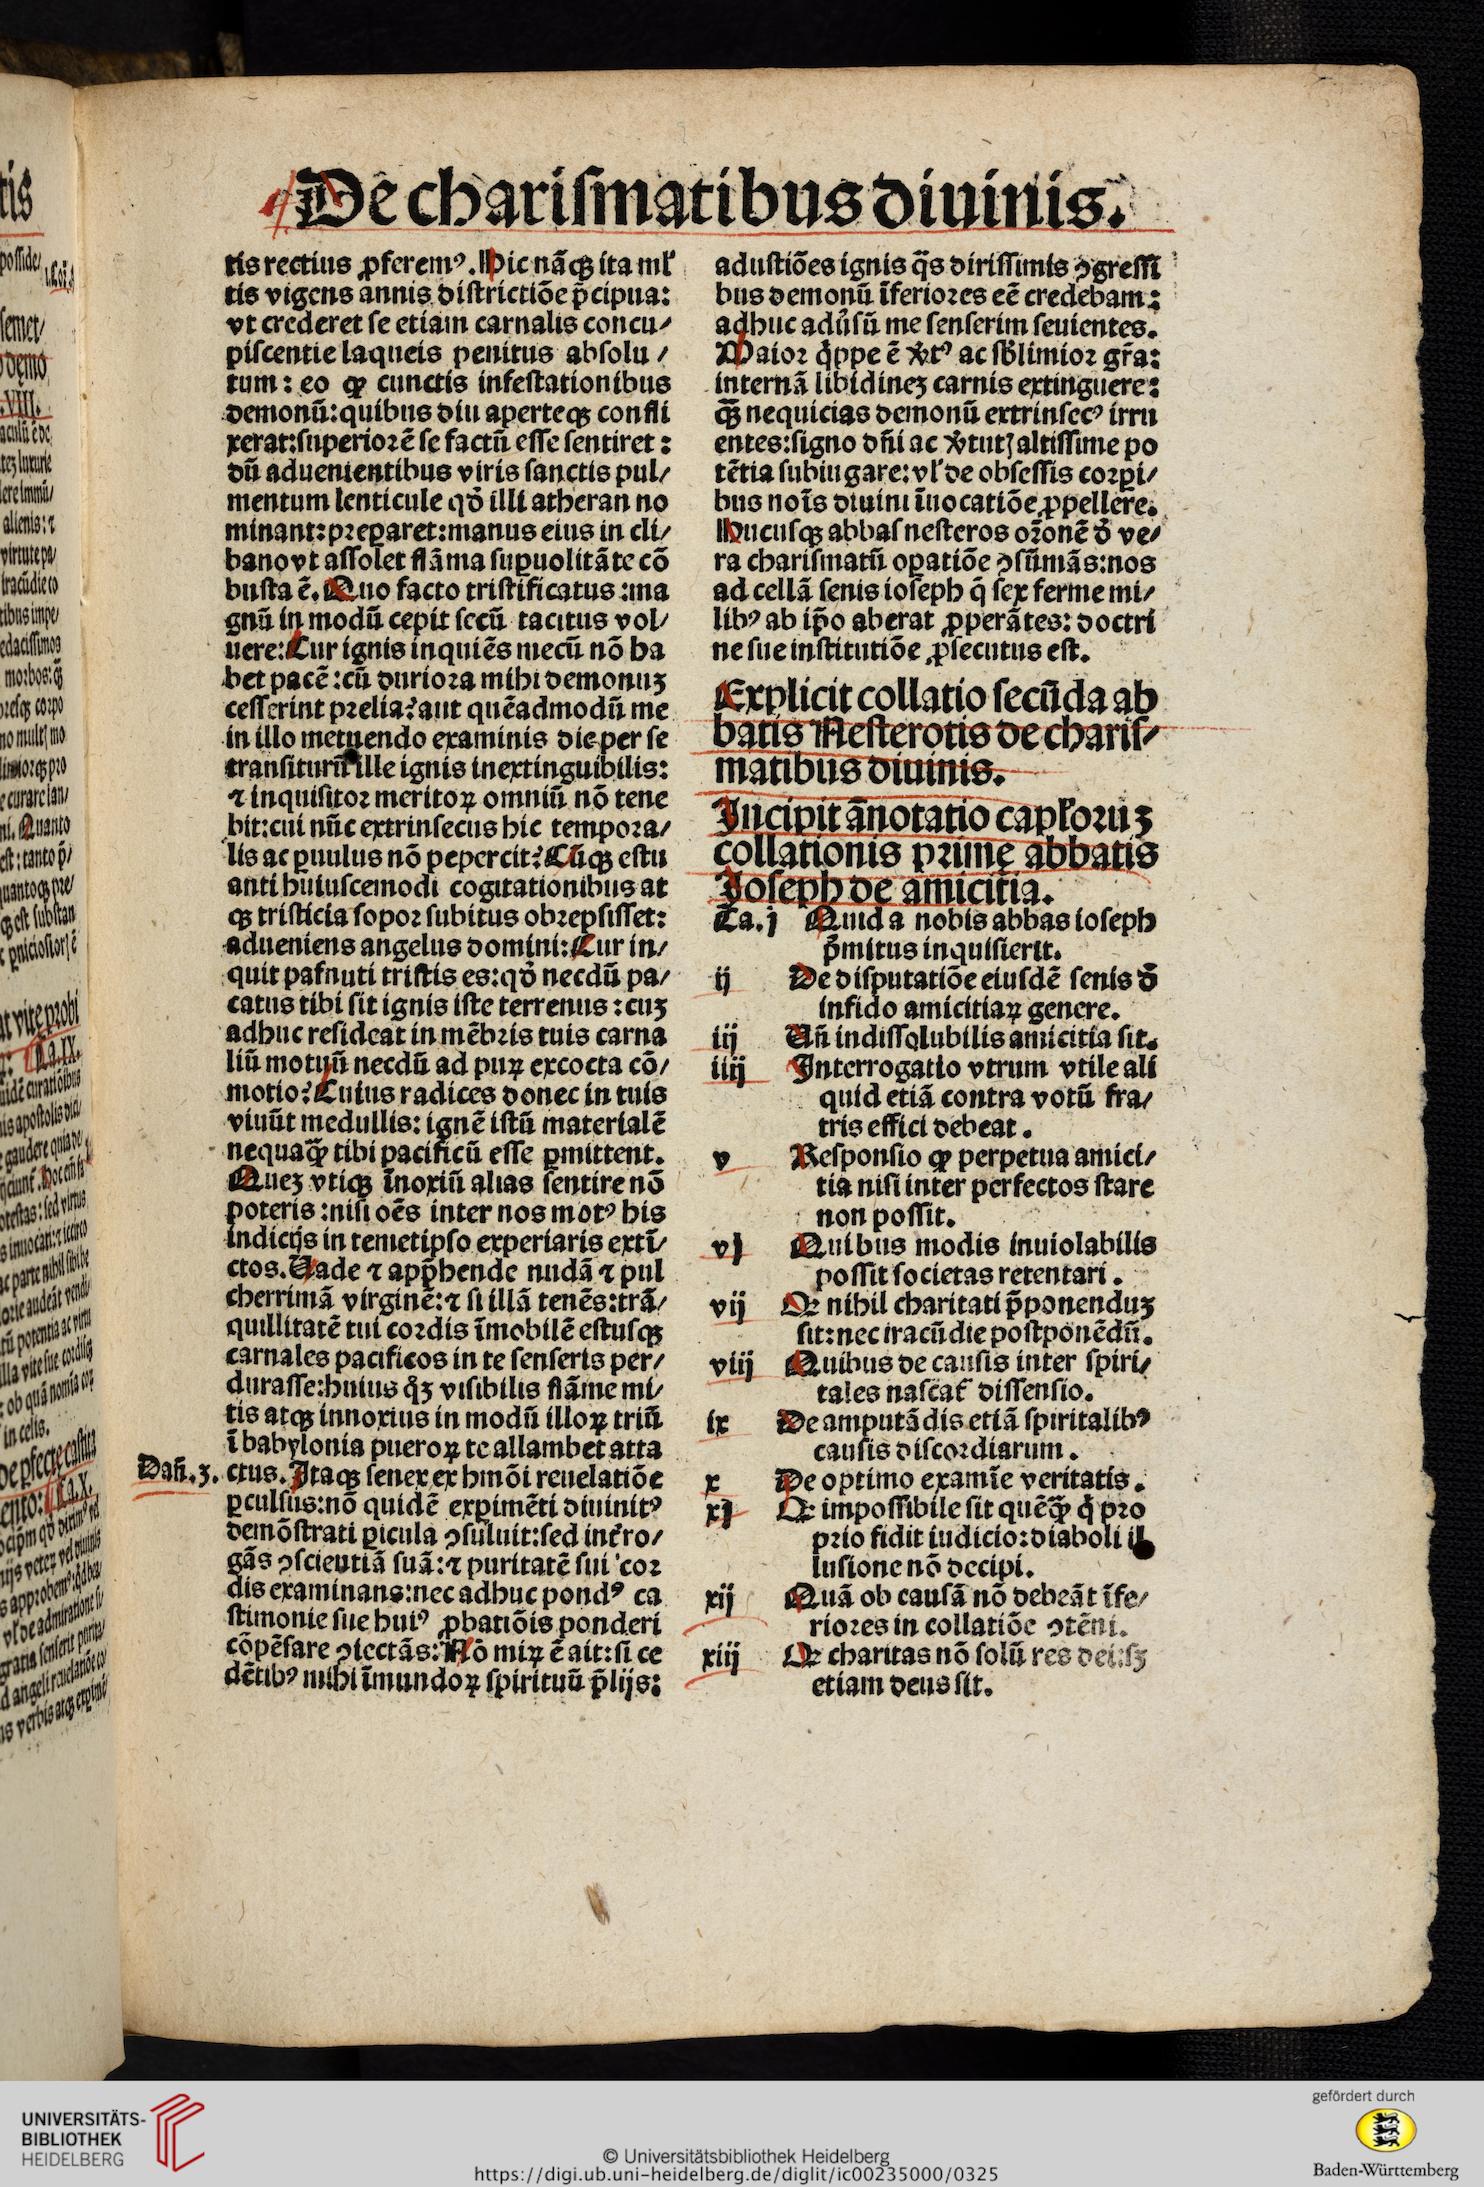 De charismatibus diuinis.
tis rectius ꝓferemꝰ. Hic nãqꝫ ita ml̕
tis vigens annis districtiõe p̃cipua:
vt crederet se etiam carnalis concu/
piscentie laqueis penitus absolu /
tum: eo ꝙ cunctis infestationibus
demonũ: quibus diu aperteqꝫ confli
xerat: superiorẽ se factũ esse sentiret:
dũ aduenientibus viris sanctis pul/
mentum lenticule qð illi atheran no
minant: prepararet: manus eius in cli/
bano vt assolet flãma suꝑuolitãte cõ
busta ẽ. Quo facto tristificatus: ma
gnũ in modũ cepit secũ tacitus vol/
uere: Cur ignis inquiẽs mecũ nõ ha
bet pacẽ: cũ duriora mihi demonuꝫ
cesserint prelia? aut quẽadmodũ me
in illo metuendo examinis die per se
transiturũ ille ignis inextinguibilis:
⁊ inquisitor meritoꝝ omniũ nõ tene
bit: cui nũc extrinsecus hic tempora/
lis ac ꝑuulus nõ pepercit? Cũqꝫ estu
anti huiuscemodi cogitationibus at
qꝫ tristicia sopor subitus obrepsisset:
adueniens angelus domini: Cur in/
quit pafnuti tristis es: qð necdũ pa/
catus tibi sit ignis iste terrenus: cuꝫ
adhuc resideat in mẽbris tuis carna
liũ motuũ necdũ ad puꝝ excocta cõ/
motio? Cuius radices donec in tuis
viuũt medullis: ignẽ istũ materialẽ
nequaꝙ̃ tibi pacificũ esse ꝑmittent.
Queꝫ vtiqꝫ ĩnoxiũ alias sentire nõ
poteris: nisi oẽs inter nos motꝰ his
indicijs in temetipso experiaris extĩ/
ctos. Vade ⁊ app̃hende nudã ⁊ pul
cherrimã virginẽ: ⁊ si illã tenẽs: trã/
quillitatẽ tui cordis ĩmobilẽ estusqꝫ
carnales pacificos in te senseris per/
durasse: huius qͥꝫ visibilis flãme mi/
tis atqꝫ innoxius in modũ illoꝝ triũ
ĩ babylonia pueroꝝ te allambet atta
Dañ. 3.
ctus. Itaqꝫ senex ex hmõi reuelatiõe
ꝑculsus: nõ quidẽ exꝑimẽti diuinitꝰ
demõstrati ꝑicula ꝯsuluit: sed int̕ro/
gãs ꝯscientiã suã: ⁊ puritatẽ sui cor
dis examinans: nec adhuc pondꝰ ca
stimonie sue huiꝰ ꝓbatiõis ponderi
cõpẽsare ꝯiectãs: Nõ miꝝ ẽ ait: si ce
dẽtibꝰ mihi ĩmundoꝝ spirituũ p̃lijs:
adustiões ignis q̃s dirissimis ꝯgressi
bus demonũ ĩferiores eẽ credebam:
adhuc adũsũ me senserim seuientes.
Maior qͥppe ẽ v̕tꝰ ac sb̕limior gr̃a:
internã libidineꝫ carnis extinguere:
qꝫ̃ nequicias demonũ extrinsecꝰ irru
entes: signo dñi ac v̕tutꝭ altissime po
tẽtia subiugare: vl̕ de obsessis corꝑi/
bus noĩs diuini ĩuocatiõe ꝓpellere.
Hucusqꝫ abbas nesteros or̃onẽ ð ve/
ra charismatũ oꝑatiõe ꝯsũmãs: nos
ad cellã senis ioseph q̃ sex ferme mi/
libꝰ ab ip̃o aberat ꝓperãtes: doctri
ne sue institutiõe ꝓsecutus est.
Explicit collatio secũda ab
batis Nesterotis de charis/
matibus diuinis.
Incipit ãnotatio capl̕oruꝫ
collationis prime abbatis
Joseph de amicitia.
Ca. j Quid a nobis abbas ioseph
p̃mitus inquisierit.
ij De disputatiõe eiusdẽ senis ð
infido amicitiaꝝ genere.
iij Añ indissolubilis amicitia sit.
iiij Interrogatio vtrum vtile ali
quid etiã contra votũ fra/
tris effici debeat.
v Responsio ꝙ perpetua amici/
tia nisi inter perfectos stare
non possit.
vj Quibus modis inuiolabilis
possit societas retentari.
vij Qꝛ nihil charitati p̃ponenduꝫ
sit: nec iracũdie postponẽdũ.
viij Quibus de causis inter spiri/
tales nascat̕ dissensio.
ix De amputãdis etiã spiritalibꝰ
causis discordiarum.
x De optimo examĩe veritatis.
xj Qꝛ impossibile sit quẽꝙ̃ qͥ pro
prio fidit iudicio: diaboli il
lusione nõ decipi.
xij Quã ob causã nõ debeãt ĩfe/
riores in collatiõe ꝯtẽni.
xiij Qꝛ charitas nõ solũ res dei: sꝫ
etiam deus sit.
UNIVERSITÄTS-
BIBLIOTHEK
HEIDELBERG
© Universitätsbibliothek Heidelberg
https://digi.ub.uni-heidelberg.de/diglit/ic00235000/0325
gefördert durch
Baden-Württemberg